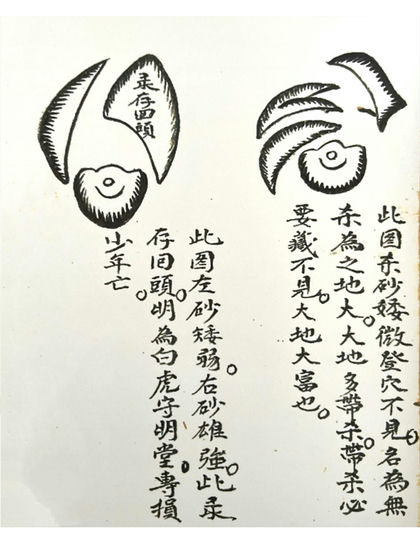 此图杀砂婑微登穴不見。名為無
杀為之地大。大地多帶杀。帶杀必
要藏不見大地大富也。
录存回頭
此图左砂矮弱。右砂雄強。此录
存回頭。明為白虎守明堂。專損
少年亡。